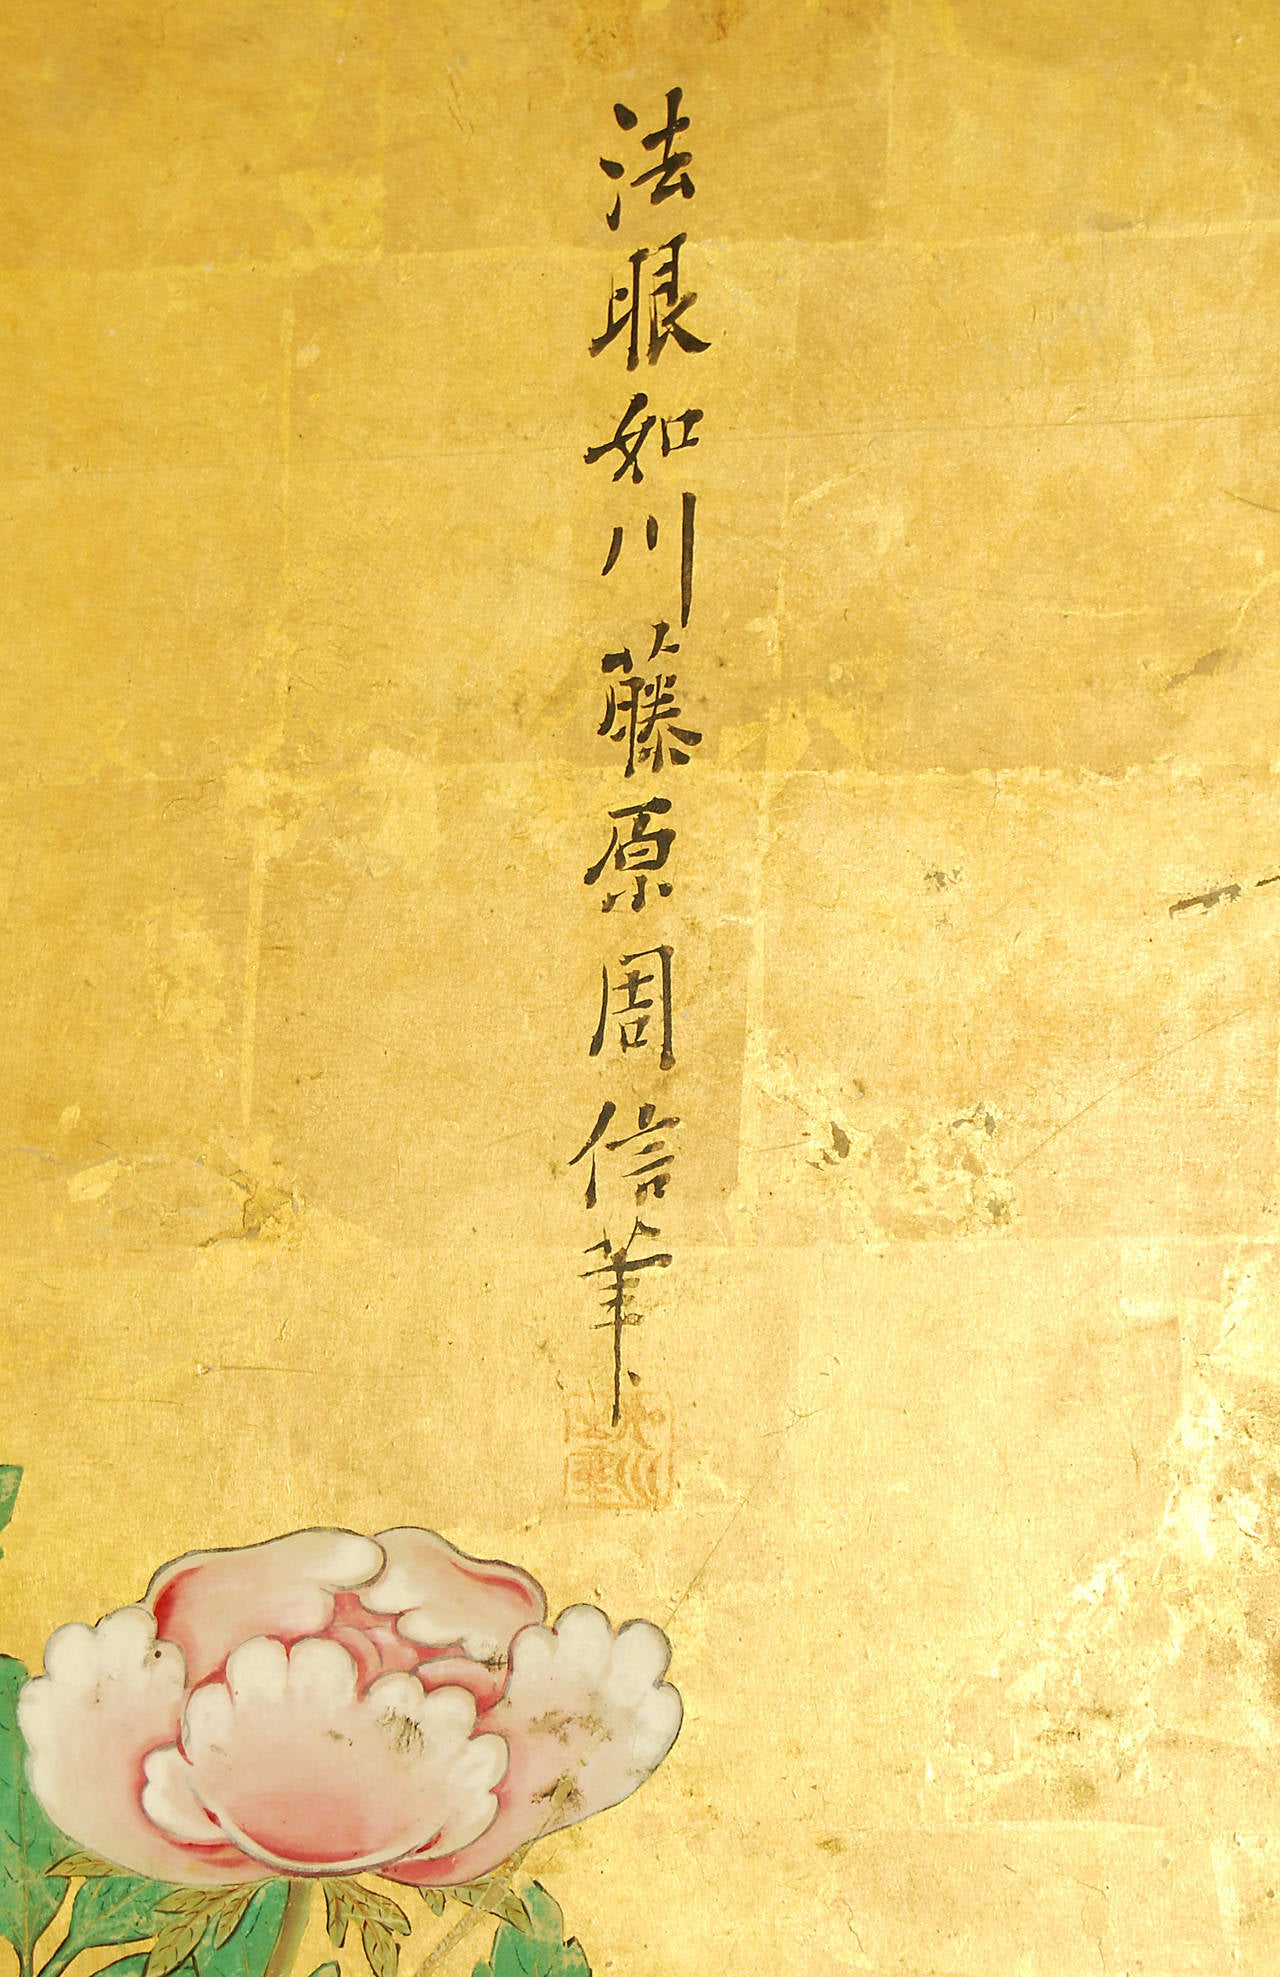 法眼如川藤原周信筆